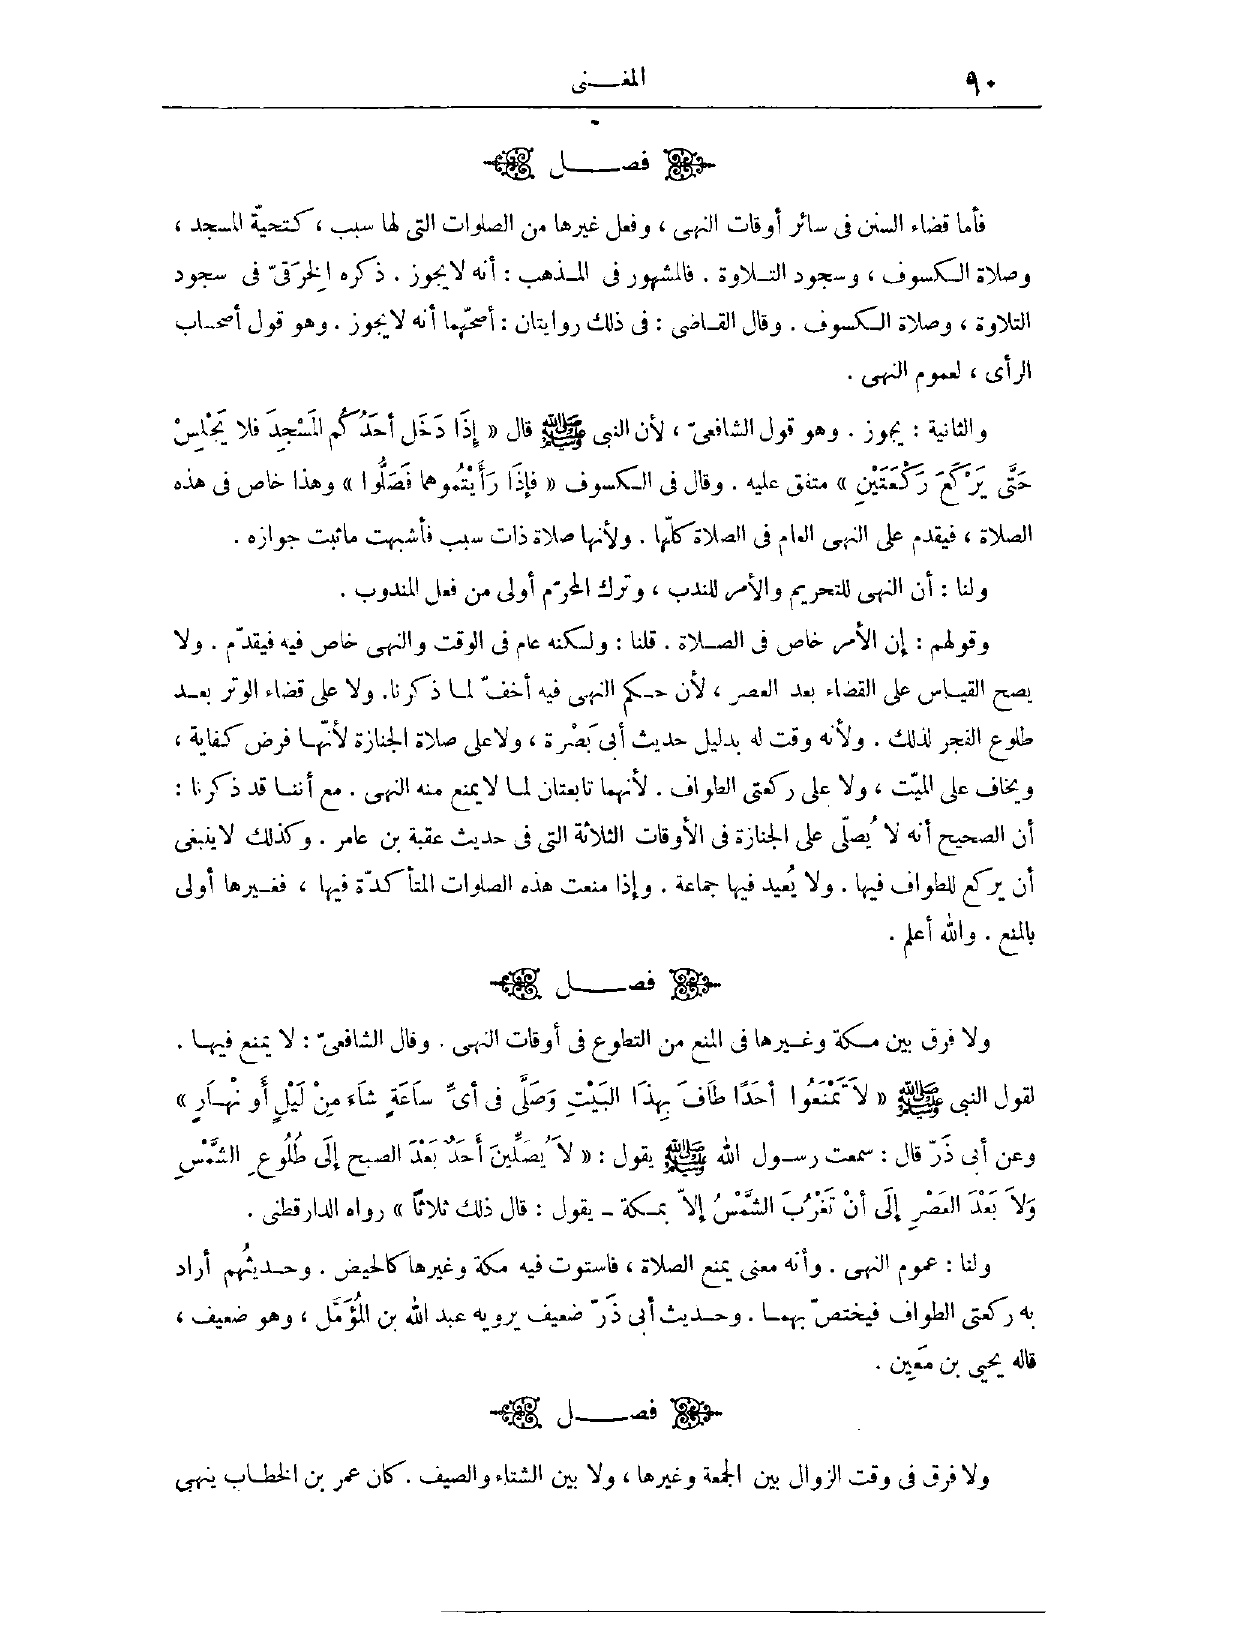 ٩٠ المغــنى
فصــــل
فأما قضاء السنن فى سائر أوقات النهى ، وفعل غيرها من الصلوات التى لها سبب ، كتحيّة المسجد ،
وصلاة الكسوف ، وسجود التلاوة . فالمشهور فى المذهب : أنه لايجوز . ذكره الخِرَقىّ فى سجود
التلاوة ، وصلاة الكسوف . وقال القاضى : فى ذلك روايتان : أصحّهما أنه لايجوز . وهو قول أصحاب
الرأى ، لعموم النهى .
والثانية : يجوز . وهو قول الشافعىّ ، لأن النبى ﷺ قال « إِذَا دَخَل أَحَدُكُم المَسْجِدَ فلا يَجْلِسْ
حَتَّى يَرْكَعَ رَكْعَتَيْنِ » متفق عليه . وقال فى الكسوف « فإِذَا رَأَيْتُموها فَصَلُّوا » وهذا خاص فى هذه
الصلاة ، فيقدم على النهى العام فى الصلاة كلّها . ولأنها صلاة ذات سبب فأشبهت ماثبت جوازه .
ولنا : أن النهى للتحريم والأمر للندب ، وترك المحرّم أولى من فعل المندوب .
وقولهم : إن الأمر خاص فى الصلاة . قلنا : ولكنه عام فى الوقت والنهى خاص فيه فيقدّم . ولا
يصح القياس على القضاء بعد العصر ، لأن حكم النهى فيه أخفّ لما ذكرنا. ولا على قضاء الوتر بعد
طلوع الفجر لذلك . ولأنه وقت له بدليل حديث أبى بَصْرة ، ولاعلى صلاة الجنازة لأنّها فرض كفاية ،
ويخاف على الميّت ، ولا على ركعتى الطواف . لأنهما تابعتان لما لايمنع منه النهى . مع أننا قد ذكرنا :
أن الصحيح أنه لا يُصلّى على الجنازة فى الأوقات الثلاثة التى فى حديث عقبة بن عامر . وكذلك لاينبغى
أن يركع للطواف فيها . ولا يُعيد فيها جماعة . وإذا منعت هذه الصلوات المتأكدّة فيها ، فغيرها أولى
بالمنع . والله أعلم .
فصــــل
ولا فرق بين مكة وغيرها فى المنع من التطوع فى أوقات النهى . وقال الشافعىّ : لا يمنع فيها .
لقول النبى ﷺ « لاَ تَمْنَعُوا أحَدًا طَافَ بِهذَا البَيْتِ وَصَلَّى فى أىِّ ساَعَةٍ شَاءَ مِنْ لَيْلٍ أَو نَهَارٍ »
وعن أبى ذَرّ قال : سمعت رسول الله ﷺ يقول : « لاَ يُصَلِّيَنَّ أَحَدٌ بَعْدَ الصبح إِلَى طُلُوعِ الشَّمْسِ
وَلاَ بَعْدَ العَصْرِ إِلَى أَنْ تَغْرُبَ الشَّمْسُ إِلاّ بمكة - يقول : قال ذلك ثلاثاً » رواه الدارقطنى .
ولنا : عموم النهى . وأنه معنى يمنع الصلاة ، فاستوت فيه مكة وغيرها كالحيض . وحديثُهم أراد
به ركعتى الطواف فيختصّ بهما . وحديث أبى ذَرّ ضعيف يرويه عبد الله بن المُؤَمَّل ، وهو ضعيف ،
قاله يحيى بن مَعِين .
فصــــل
ولا فرق فى وقت الزوال بين الجمعة وغيرها ، ولا بين الشتاء والصيف . كان عمر بن الخطاب ينهى